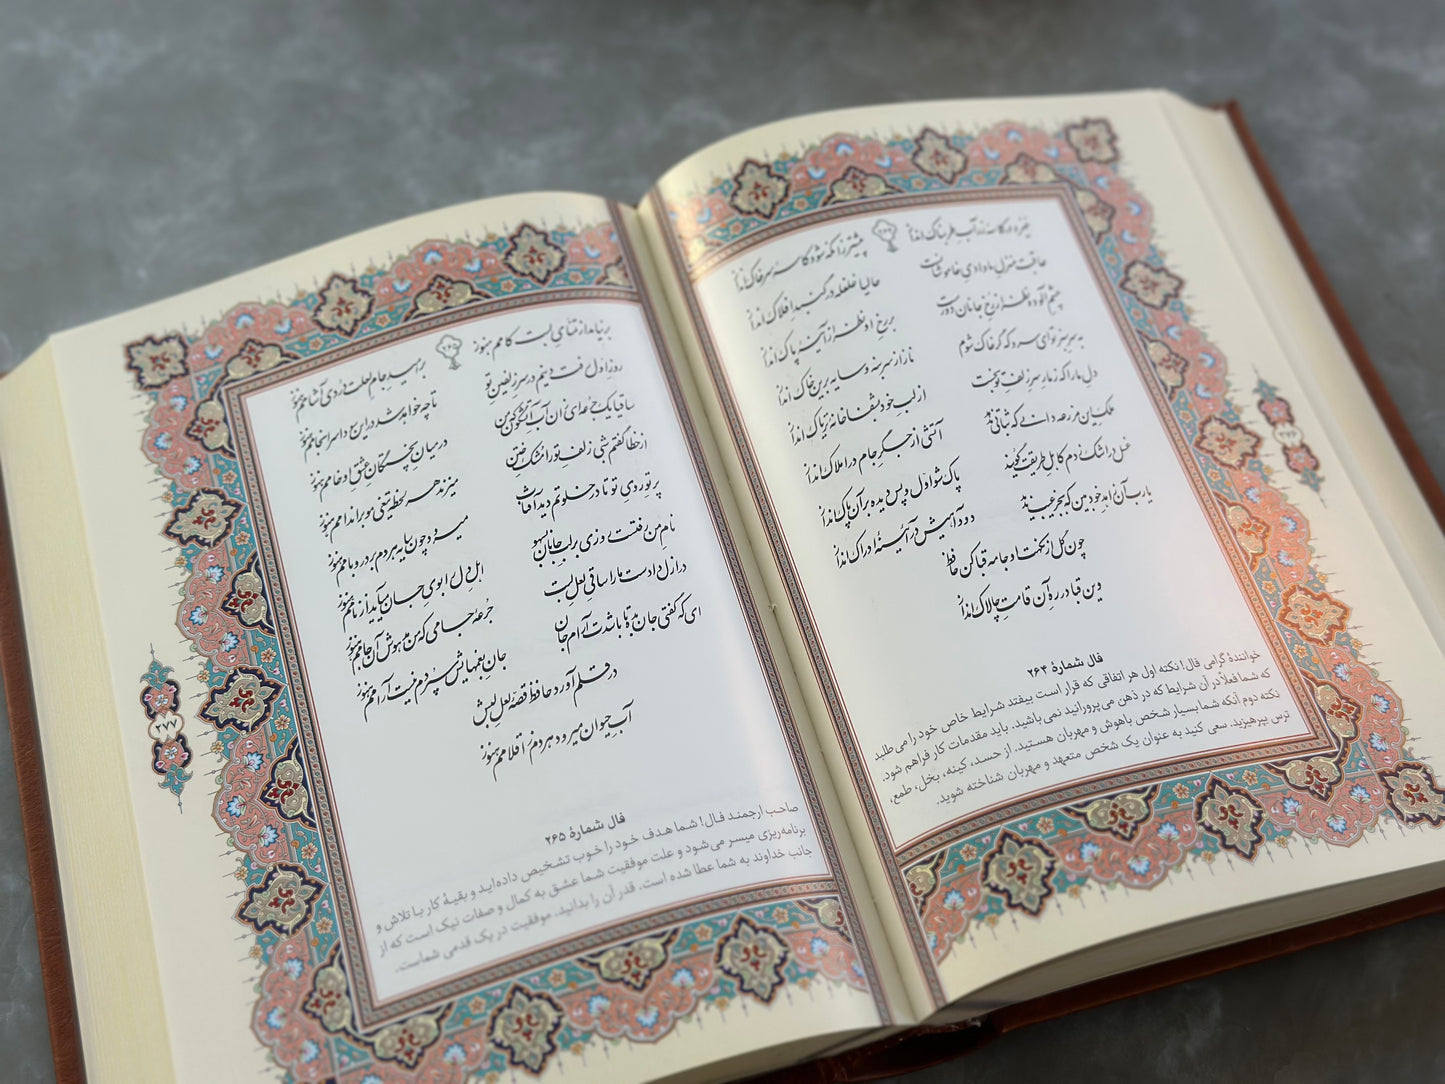 ۲۶۴
خیز و در کاسهٔ زر آبِ طربناک انداز پیشتر زانکه شود کاسهٔ سر خاک انداز
عاقبت منزلِ ما وادیِ خاموشانست حالیا غلغله در گنبدِ افلاک انداز
چشمِ آلوده نظر از رُخِ جانان دورست بر رخِ او نظر از آینهٔ پاک انداز
به سرِ سبزِ تو ای سرو که گر خاک شوم ناز از سر بنه و سایه برین خاک انداز
دلِ ما را که ز مارِ سرِ زلفِ تو بخست از لبِ خود بشفاخانهٔ تریاک انداز
ملکِ این مزرعه دانی که ثباتی ندهد آتشی از جگرِ جام در املاک انداز
غسل در اشک زدم کاهلِ طریقت گویند پاک شو اوّل و پس دیده بر آن پاک انداز
یارب آن زاهدِ خودبین که بجز عیب ندید دودِ آهیش در آئینهٔ ادراک انداز
چون گل از نکهتِ او جامه قبا کن حافظ
وین قبا در رهِ آن قامتِ چالاک انداز
فال شمارهٔ ۲۶۴
خوانندهٔ گرامی فال! نکته اول هر اتفاقی که قرار است بیفتد شرایط خاص خود را می‌طلبد
که شما فعلاً در آن شرایط که در ذهن می‌پرورانید نمی‌باشید. باید مقدمات کار فراهم شود.
نکته دوم آنکه شما بسیار شخص باهوش و مهربان هستید. از حسد، کینه، بخل، طمع،
ترس بپرهیزید. سعی کنید به عنوان یک شخص متعهد و مهربان شناخته شوید.
۲۷۶
۲۶۵
برنیامد از تمنّایِ لبت کامم هنوز بر امیدِ جامِ لعلت دُردی آشامم هنوز
روزِ اول رفت دینم در سرِ زلفینِ تو تا چه خواهد شد در این سودا سرانجامم هنوز
ساقیا یک جرعه‌ای زان آبِ آتشگون که من در میانِ پختگانِ عشقِ او خامم هنوز
از خطا گفتم شبی زلفِ تو را مُشکِ ختن میزند هر لحظه تیغی مو بر اندامم هنوز
پرتوِ رویِ تو تا در خلوتم دید آفتاب میرود چون سایه هر دم بر در و بامم هنوز
نامِ من رفتست روزی بر لبِ جانان بسهو اهلِ دل را بویِ جان میآید از نامم هنوز
در ازل دادست ما را ساقیِ لعلِ لبت جُرعهٔ جامی که من مدهوشِ آن جامم هنوز
ای که گفتی جان بده تا باشدت آرامِ جان جان بغمهایش سپردم نیست آرامم هنوز
در قلم آورد حافظ قصّهٔ لعلِ لبش
آبِ حیوان میرود هر دم ز اقلامم هنوز
فال شمارهٔ ۲۶۵
صاحب ارجمند فال! شما هدف خود را خوب تشخیص داده‌اید و بقیهٔ کار با تلاش و
برنامه‌ریزی میسر می‌شود و علت موفقیت شما عشق به کمال و صفات نیک است که از
جانب خداوند به شما عطا شده است. قدر آن را بدانید. موفقیت در یک قدمی شماست.
۲۷۷